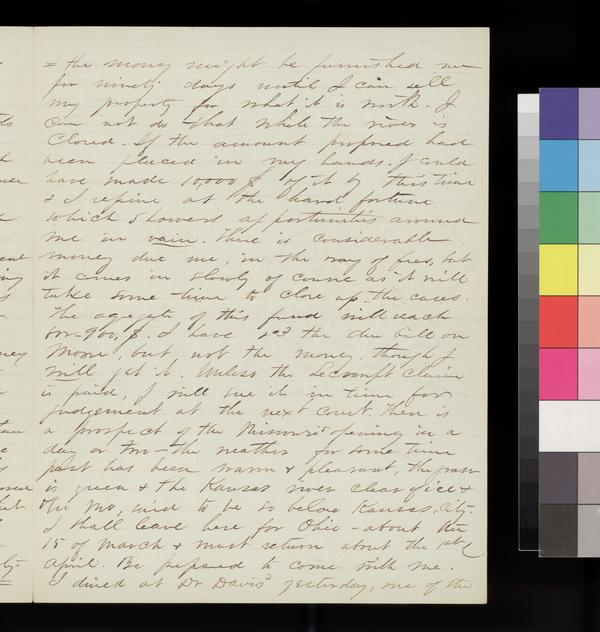 = the money might be furnished me
for ninety days until I can sell
my property for what it is worth. I
can not do that while the river is
Closed. If the amount proposed had
been placed in my hands, I could
have made 10,000 $ of it by this time
& I repine at the hard fortune
which showers opportunities around
me in vain. There is considerable
money due me, in the way of fees, but
it comes in slowly of course as it will
take some time to close up the cases.
The agegate of this fund will reach
800-900, $. I have recd the due bill on
Moore, but not the money, though I
will get it. Unless the LeCompt Claim
is paid, I will sue it in time for
judgement at the next Court. There is
a prospect of the Missouri opening in a
day or two - the weather for some time
past has been warm & pleasant, the grass
is green & the Kansas river clear of ice &
the Mo, said to be so below Kansas, City.
I shall leave here for Ohio - about the
15 of March & must return about the 1st
April. Be prepared to come with me.
I dined at Dr Davis' yesterday, one of the